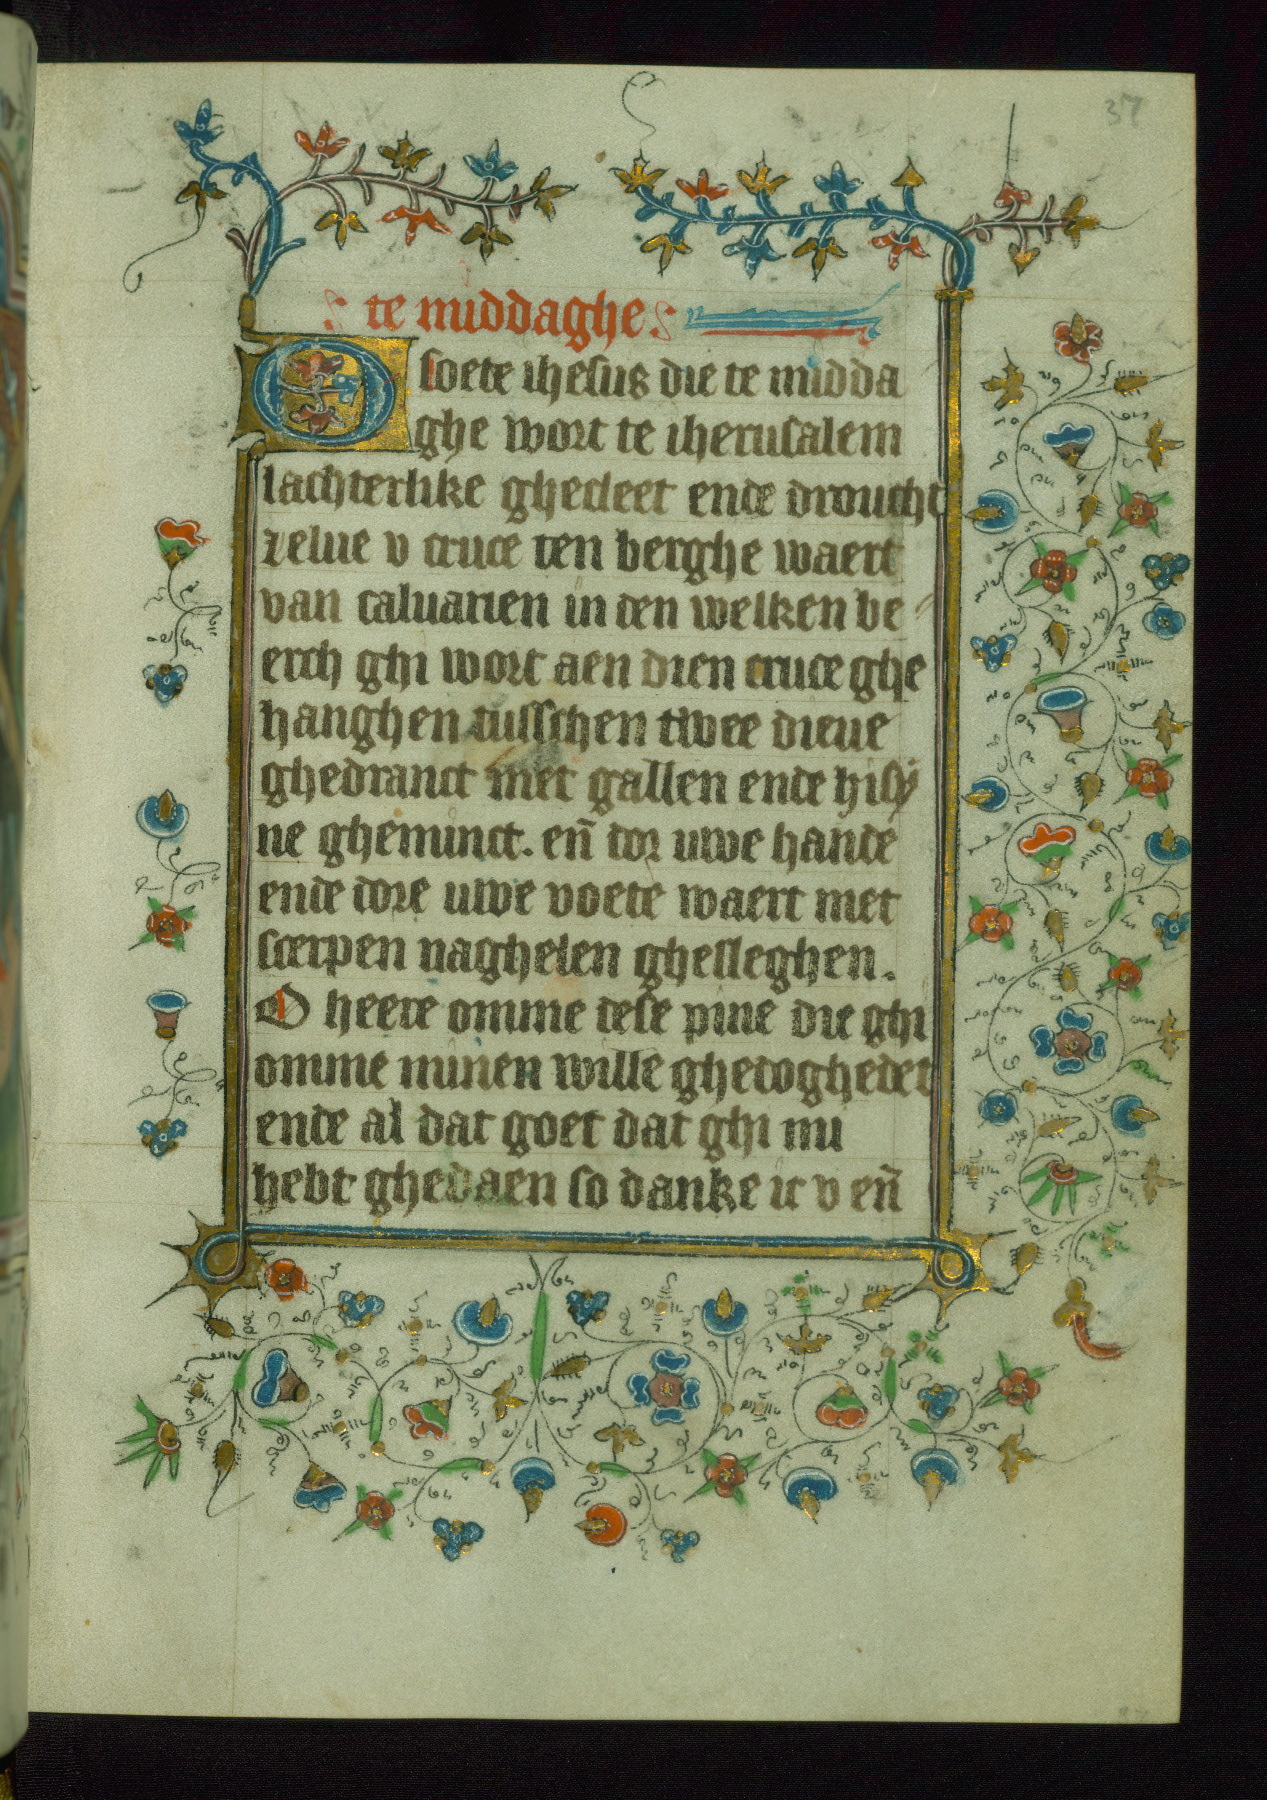 37
te middaghe
O soete ihesus die te midda
ghe wort te iherusalem
lachterlike ghecleet ende droucht
zelue v cruce ten berghe waert
van caluarien in den welken be
erch ghi wort aen dien cruce ghe
hanghen tusschen twee dieue
ghedranct met gallen ende hisÿ
ne gheminct. en̄ dor uwe hande
ende dore uwe voete waert met
scerpen naghelen ghesleghen.
O heere omme dese pine die ghi
omme minen wille ghedoghedet
ende al dat goet dat ghi mi
hebt ghedaen so danke ic v en̄